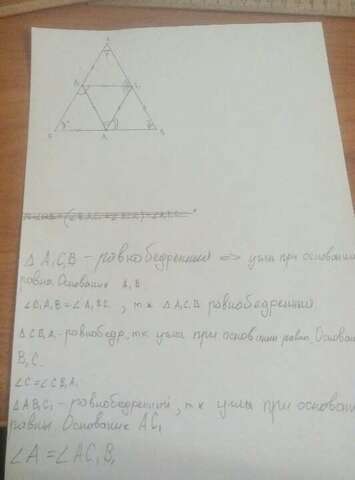 Δ A₁C₁B – равнобедренный => углы при основании
равны. Основание A₁B
∠C₁A₁B = ∠A₁BC₁, т к Δ A₁C₁B равнобедренный
ΔCB₁A₁ - равнобедр, т к углы при основании равны. Основание
B₁C.
∠C = ∠CB₁A₁
Δ AB₁C₁ - равнобедренный, т к углы при основа
равны. Основание AC₁
∠A = ∠AC₁B₁